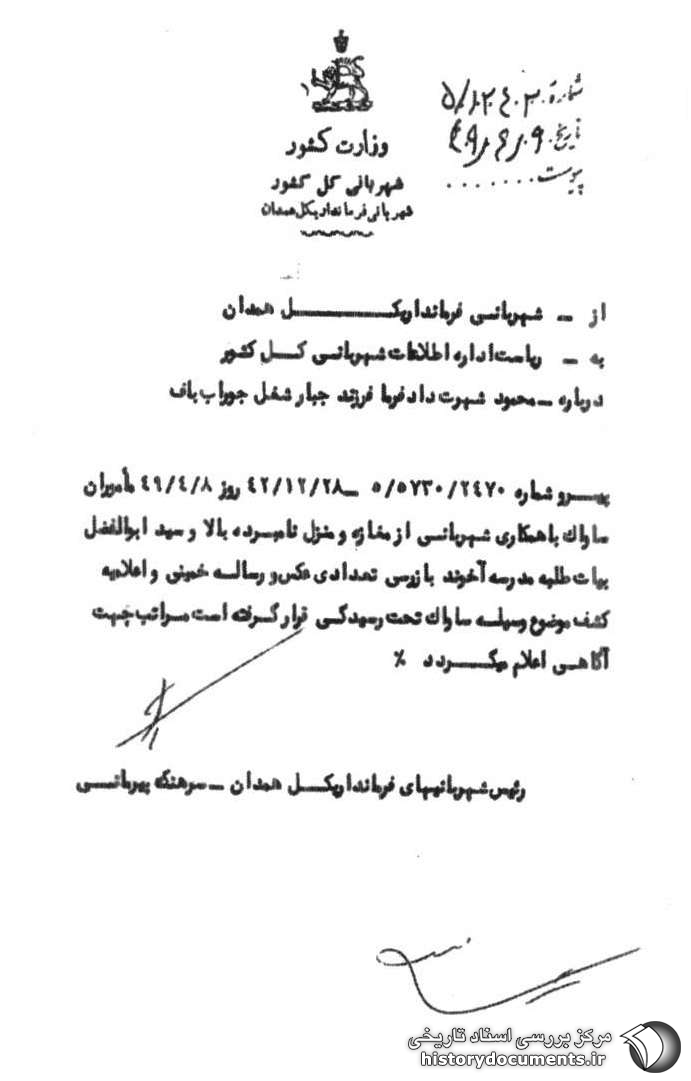 وزارت کشور
شهربانی کل کشور
شهربانی فرمانداریکل همدان
شماره ۵/۱۲۴۰۲
تاریخ ۴۹/۴/۰۹
پیوست .......
از ـ شهربانی فرمانداریکل همدان
به ـ ریاست اداره اطلاعات شهربانی کل کشور
درباره ـ محمود شهرت دادفرما فرزند جبار شغل جوراب باف
پیرو شماره ۵/۵۷۳۰/۲٤۷۰ ـ ٤۲/۱۲/۲۸ روز ٤۹/٤/۸ مأموران
ساواك با همکاری شهربانی از مغازه و منزل نامبرده بالا و سید ابوالفضل
بیات طلبه مدرسه آخوند بازرسی تعدادی عکس و رساله خمینی و اعلامیه
کشف موضوع وسیله ساواك تحت رسیدگی قرار گرفته است مراتب جهت
آگاهی اعلام میگردد ٪
رئیس شهربانیهای فرمانداریکل همدان ـ سرهنگ
مرکز بررسی اسناد تاریخی
historydocuments.ir